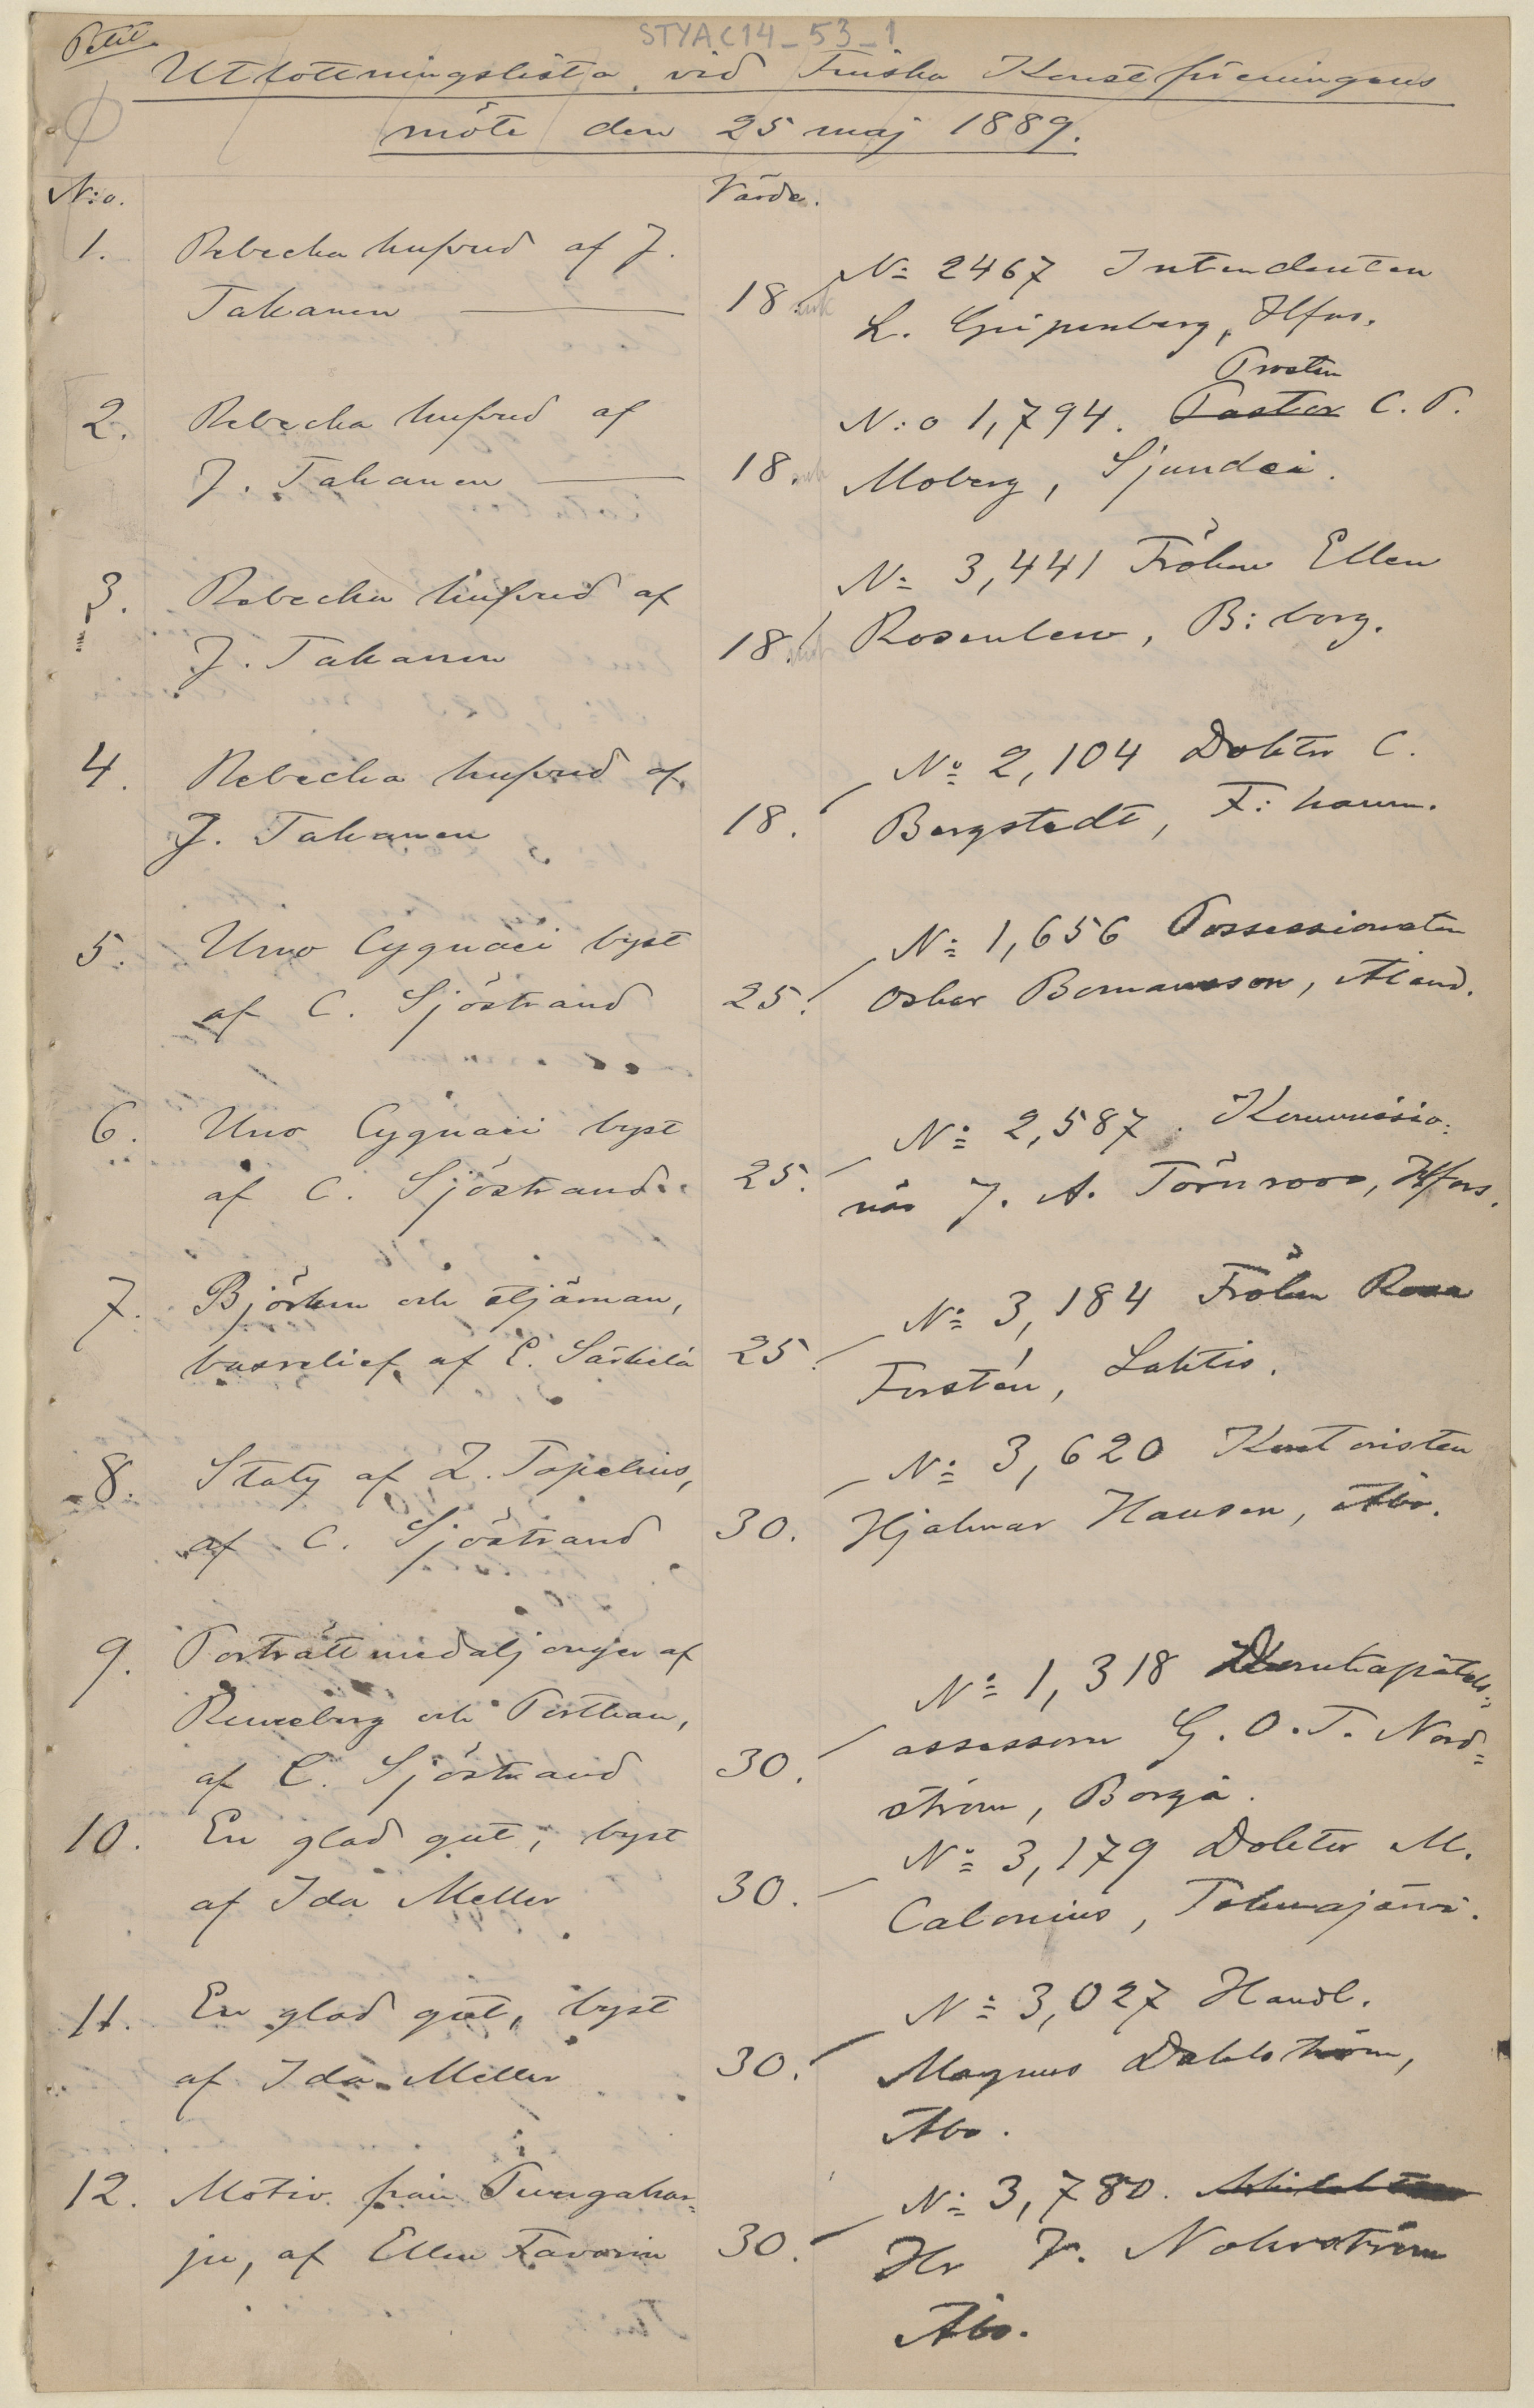 Petit
STYAC14_53_1
Utlottningslista vid Finska Konstföreningens
möte den 25 maj 1889.
N:o. Värde.
1. Rebecka hufvud af J.
Takanen 18. mk
N:o 2467 Intendenten
L. Gripenberg, Hfors.
2. Rebecka hufvud af
J. Takanen 18. mk
Prosten
N:o 1,794. Pastor C. P.
Moberg, Sjundeå.
3. Rebecka hufvud af
J. Takanen 18. mk
N:o 3,441 Fröken Ellen
Rosenlew, B:borg.
4. Rebecka hufvud af
J. Takanen 18.
N:o 2,104 Doktor C.
Bergstedt, F:hamn.
5. Uno Cygnaei byst
af C. Sjöstrand 25.
N:o 1,656 Possessionaten
Oskar Bomansson, Åland.
6. Uno Cygnaei byst
af C. Sjöstrand 25.
N:o 2,587. Kommissio:
när J. A. Törnroos, Hfors.
7. Björken och stjärnan,
basrelief af E. Särkelä 25.
N:o 3,184 Fröken Rosa
Forstén, Lahtis.
8. Staty af Z. Topelius,
af C. Sjöstrand 30.
N:o 3,620 Kontoristen
Hjalmar Hausen, Åbo.
9. Porträttmedaljonger af
Runeberg och Porthan,
af C. Sjöstrand 30.
N:o 1,318 Domkapitels-
assessorn G. O. T. Nord=
ström, Borgå.
10. En glad gut, byst
af Ida Meller 30.
N:o 3,179 Doktor M.
Calonius, Tohmajärvi.
11. En glad gut, byst
af Ida Meller 30.
N:o 3,027 Handl.
Magnus Dahlström,
Åbo.
12. Motiv från Pungahar=
ju, af Ellen Favorin 30.
N:o 3,780.
Hr F. Nohrström
Åbo.